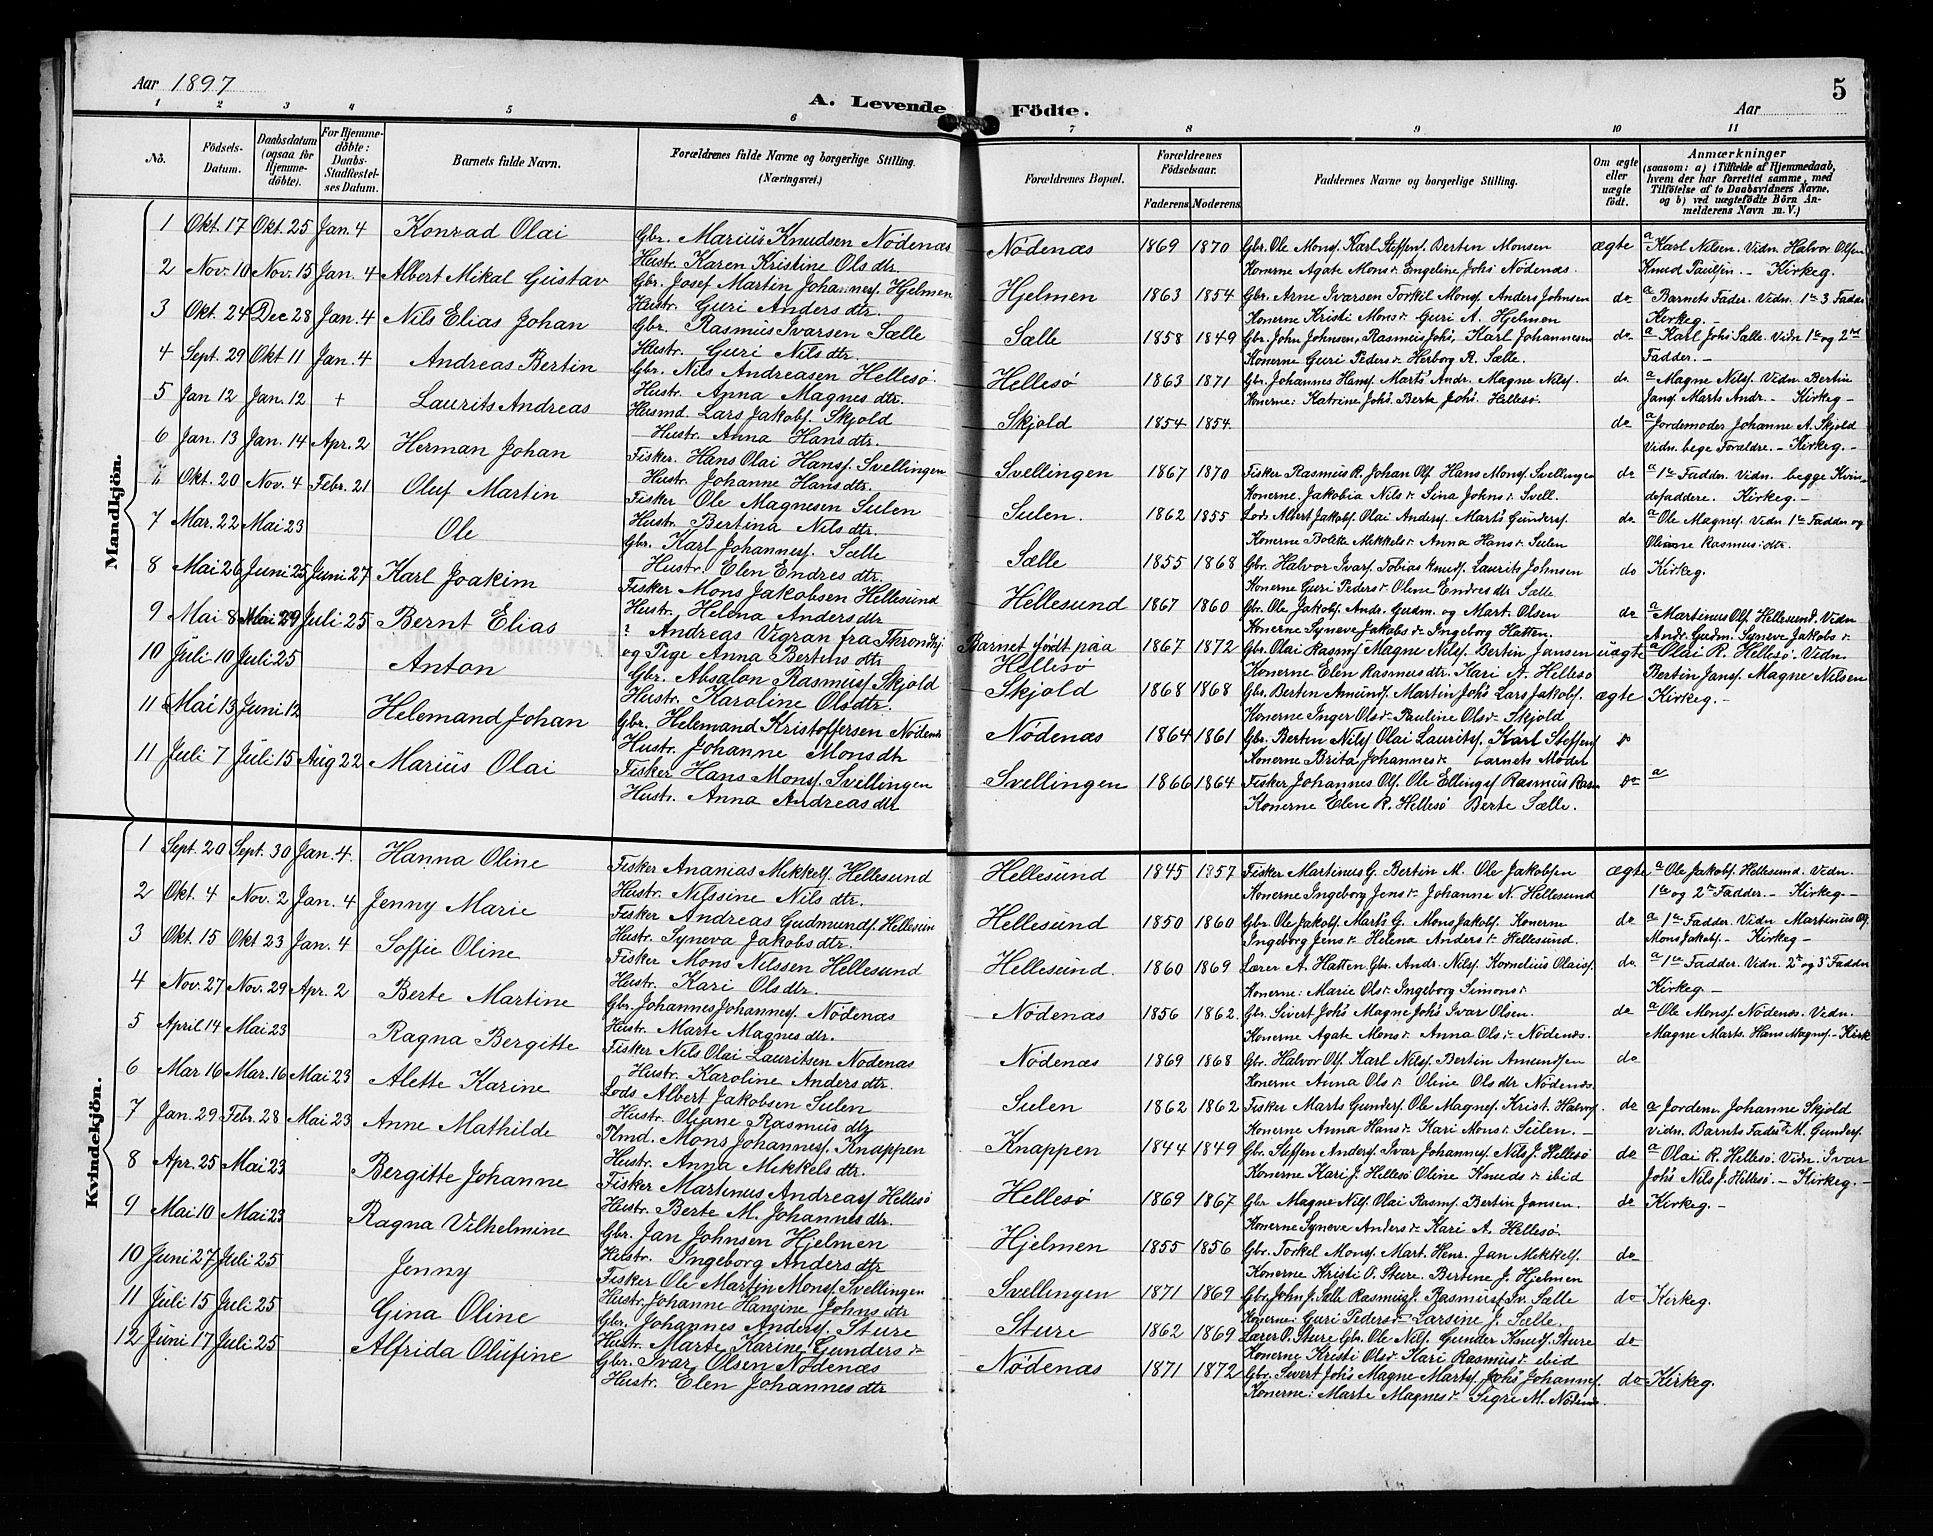 Aar 1897
A. Levende Födte.
Aar
5
1 2 3 4 5 6 7 8 9 10 11
No.
Födsels-Datum.
Daabsdatum (ogsaa for Hjemmedöbte).
For Hjemmedöbte: Daabs-Stadfæstelses Datum.
Barnets fulde Navn.
Forældrenes fulde Navne og borgerlige Stilling. (Næringsvei.)
Forældrenes Bopæl.
Forældrenes Födselsaar.
Faderens Moderens
Faddernes Navne og borgerlige Stilling.
Om ægte eller uægte født.
Anmærkninger
(saasom: a) i Tilfælde af Hjemmedaab, hvem der har forrettet samme, med Tilföielse af to Daabsvidners Navne, og b) ved uægtefödte Börn Anmelderens Navn m. V.)
Mandkjön.
1 Okt. 17 Okt. 25 Jan. 4 Konrad Olai Gbr. Marius Knudsen Nödenæs Nödenæs 1869 1870 Gbr. Ole Monsf. Karl Steffens. Bertin Monsen ægte a Karl Nilsen. Vidn. Halvor Olsen
Hustr. Karen Kristine Ols dtr. Konerne Agate Mons dr. Engeline Johs Nödenæs. Knud Paulsen. - Kirkeg.
2 Nov. 10 Nov. 15 Jan. 4 Albert Mikal Gustav Gbr. Josef Martin Johannesf. Hjelmen Hjelmen 1863 1854 Gbr. Arne Ivarsen Torkil Monsf. Anders Johnsen do a Barnets Fader. Vidn. 1te 3 Fadder
Hustr. Guri Anders dtr. Konerne Kristi Mons dr. Guri A. Hjelmen Kirkeg. -
3 Okt. 24 Dec 28 Jan. 4 Nils Elias Johan Gbr. Rasmus Ivarsen Sælle Sælle 1858 1849 Gbr. John Johnsen, Rasmus Johs, Karl Johannesen do a Karl Johs Sælle. Vidn 1te og 2den
Hustr. Guri Nils dtr. Konerne Guri Peders dr. Herborg R. Sælle. Fadder. -
4 Sept. 29 Okt 11 Jan. 4 Andreas Bertin Gbr. Nils Andreasen Hellesö. Hellesö 1863 1871 Gbr. Johannes Hansf. Marts Andr. Magne Nilsf. do a Magne Nilsf. Vidn. Bertin
Hustr. Anna Magnes dtr. Konerne: Katrine Johs. Berte Johs. Hellesö. Jansf. Marts Andr. - Kirkeg -
5 Jan 12 Jan. 12 + Laurits Andreas Husmd. Lars Jakobsf. Skjold Skjold 1854 1854. do a Jordemoder Johanne A. Skjold
Hustr. Anna Hans dtr. Vidn. bege Forældre. - Kirkeg -
6 Jan. 13 Jan. 14 Apr. 2 Herman Johan Fisker. Hans Olai Hansf. Svellingen Svellingen 1867 1870 Fisker Rasmus R. Johan Olsf. Hans Monsf. Svellingen do a 1te Fadder. Vidn. begge Kvin
Hustr. Johanne Hans dtr. Konerne. Jakobia Nils dr. Sina Johns dr. Svell. defaddere. Kirkeg. -
7 Okt. 20 Nov. 4 Febr. 21 Oluf Martin Fisker Ole Magnesen Sulen Sulen. 1862 1855 Lods Albert Jakobsf. Olai Andersf. Marts Gundersf. do a Ole Magnesf. Vidn 1te Fadder og
Hustr. Bertina Nils dtr. Konerne Bolette Mikkels dr. Anna Hans dr. Sulen Oliane Rasmus: dtr.
7 Mar. 22 Mai 23 Ole Gbr. Karl Johannesf. Sælle Sælle 1855 1868 Gbr. Halvor Ivarsf. Tobias Knudsf. Laurits Johnsen do Kirkeg.
Hustr. Elen Endres dtr. Konerne Guri Peders dr. Oline Endres dr Sælle
8 Mai 26 Juni 25 Juni 27 Karl Joakim Fisker Mons Jakobsen Hellesund Hellesund 1867 1860 Gbr. Ole Jakobsf. Andr. Gudm. og Mart. Olsen do a Martinus Olsf. Hellesund. Vidn
Hustr. Helena Anders dtr Konerne Syneve Jakobs dr. Ingeborg Hatten. Andr. Gudm. Syneve Jakobs dr
9 Mai 8 Mai 29 Juli 25 Bernt Elias ? Andreas Vigran fra Throndhj Barnet født paa Hellesö 1867 1872 Gbr. Olai Rasmsf. Magne Nilsf. Bertin Jansen uægte a Olai R. Hellesö. Vidn.
og Pige Anna Bertens dtr Konerne Elen Rasmus dtr. Kari A. Hellesö Bertin Jansf. Magne Nilsen
10 Juli 10 Juli 25 Anton Gbr. Absalon Rasmusf. Skjold Skjold 1868 1868 Gbr. Berten Amundsf. Martin Johs Lars Jakobsf. ægte Kirkeg. -
Hustr. Karoline Ols dtr. Konerne Inger Ols dr. Pauline Ols dr. Skjold
11 Mai 13 Juni 12 Helemand Johan Gbr. Helemand Kristoffersen Nödenæs Nödenæs 1864 1861 Gbr. Bertin Nilsf. Olai Lauritsf. Karl Steffensf. do
Hustr. Johanne Mons dtr Konerne Brita Johannes dr. barnets Moder
11 Juli 7 Juli 15 Aug 22 Marius Olai Fisker Hans Monsf. Svellingen Svellingen 1866 1864 Fisker Johannes Olsf. Ole Ellingsf. Rasmus Rasm do a
Hustr. Anna Andreas dtr Konerne Elen R. Hellesö Berte Sælle.
Kvindekjön.
1 Sept. 20 Sept. 30 Jan. 4. Hanna Oline Fisker Ananias Mikkelsf. Hellesund Hellesund 1845 1857 Fisker Martinus G. Bertin M. Ole Jakobsen ægte a Ole Jakobsf. Hellesund. Vidn.
Hustr. Nilssine Nils dtr. Konerne Ingeborg Jens dr. Johanne N. Hellesund 1te og 2den Fadder - Kirkeg -
2 Okt. 4 Nov. 2 Jan. 4 Jenny Marie Fisker Andreas Gudmundsf. Hellesun Hellesund 1850 1860 Gbr. Ole Jakobsf. Marts G. Mons Jakobsf. Konerne do a 1te Fadder. Vidn Martinus Og
Hustr. Syneva Jakobs dtr. Ingeborg Jens dr. Helena Anders dr. Hellesund. Mons Jakobsf. - Kirkeg -
3 Okt. 15 Okt 23 Jan. 4 Soffie Oline Fisker Mons Nilssen Hellesund Hellesund. 1860 1869 Lærer A. Hatten Gbr. Andr. Nilsf. Kornelius Olaisf. do a 1te Fadder. Vidn. 2den og 3die Fadder
Hustr. Kari Ols dtr. Konerne: Marie Ols dr. Ingeborg Simons dr. Kirkeg. -
4 Nov. 27 Nov. 29 Apr. 2 Berte Martine Gbr. Johannes Johannesf. Nödenæs Nödenæs 1856 1862. Gbr. Sivert Johs Magne Johs Ivar Olsen. do a Ole Monsf. Nödenæs. Vidn.
Hustr. Marte Magnes dtr. Konerne Agate Mons dr. Anna Ols dr. Nödenæs. Magne Marts. Hans Magnesf. - Kirk
5 April 14 Mai 23 Ragna Bergitte Fisker Nils Olai Lauritsen Nödenæs Nödenæs 1869 1868 Gbr. Halvor Olsf. Karl Nilsf. Bertin Amundsen do
Hustr. Karoline Anders dtr. Konerne Anna Ols dr. Oline Ols dtr Nödenæs.
6 Mar 16 Mar. 16 Mai 23 Alette Karine Lods Albert Jakobsen Sulen Sulen 1862 1862 Fisker Marts Gundersf. Ole Magnesf. Krist. Halvorsf. do a Jordem. Johanne Skjold
Hustr. Oliane Rasmus dtr Konerne Anna Hans dr. Kari Mons dr. Sulen. - Vidn. Barnts Fader M. Gundersf.
7 Jan. 29 Febr. 28 Mai 23 Anne Mathilde Hmd. Mons Johannesf. Knappen Knappen 1844 1849 Gbr. Steffen Andersf. Ivar Johannesf. Nils J. Hellesö do a Olai R. Hellesö. Vidn. Ivar
Hustr. Anna Mikkels dtr. Konerne Kari J. Hellesö Oline Knuds dr. ibid Johs. Nils J. Hellesö. - Kirkeg. -
8 Apr. 25 Mai 23 Bergitte Johanne Fisker Martinus Andreasf. Hellesö Hellesö 1869 1867 Gbr Magne Nilsf. Olai Rasmsf. Bertin Jansen. do Kirkeg. -
Hustr. Berte M. Johannes dtr. Konerne Syneve Anders dr. Kari A. Hellesö.
9 Mai 10 Mai 23 Ragna Vilhelmine Gbr. Jan Johnsen Hjelmen Hjelmen 1855 1856 Gbr. Torkel Monsf. Mart. Henr. Jan Mikkelsf. do
Hustr. Ingeborg Anders dtr Konerne Kristi O. Sture. Bertine J. Hjelmen
10 Juni 27 Juli 25 Jenny Fisker Ole Martin Monsf. Svellingen Svellingen 1871 1869 Gbr. John J. Sælle Rasmus J. Rasmus Iv. Sælle do Kirkeg.
Hustr. Johanne Hansine Johns dtr Konerne: Guri Peders dr. Larsine J. Sælle.
11 Juli 15 Juli 25 Gina Oline Gbr. Johannes Andersf. Sture Sture 1862 1869 Lærer O. Sture Gbr. Ole Nilsf. Gunder Knudsf. Sture do
Hustr. Marte Karine Gunders dr Konerne Kristi Ols dr. Kari Rasmus dr. ibid
12 Juni 17 Juli 25 Alfrida Olüfine Gbr. Ivar Olsen Nödenæs Nödenæs 1871 1872 Gbr. Sivert Johs Magne Martsf. Johs Johannesf. do Kirkeg.
Hustr. Elen Johannes dtr Konerne: Marte Magnes dr. Sigre M. Nödenæs.